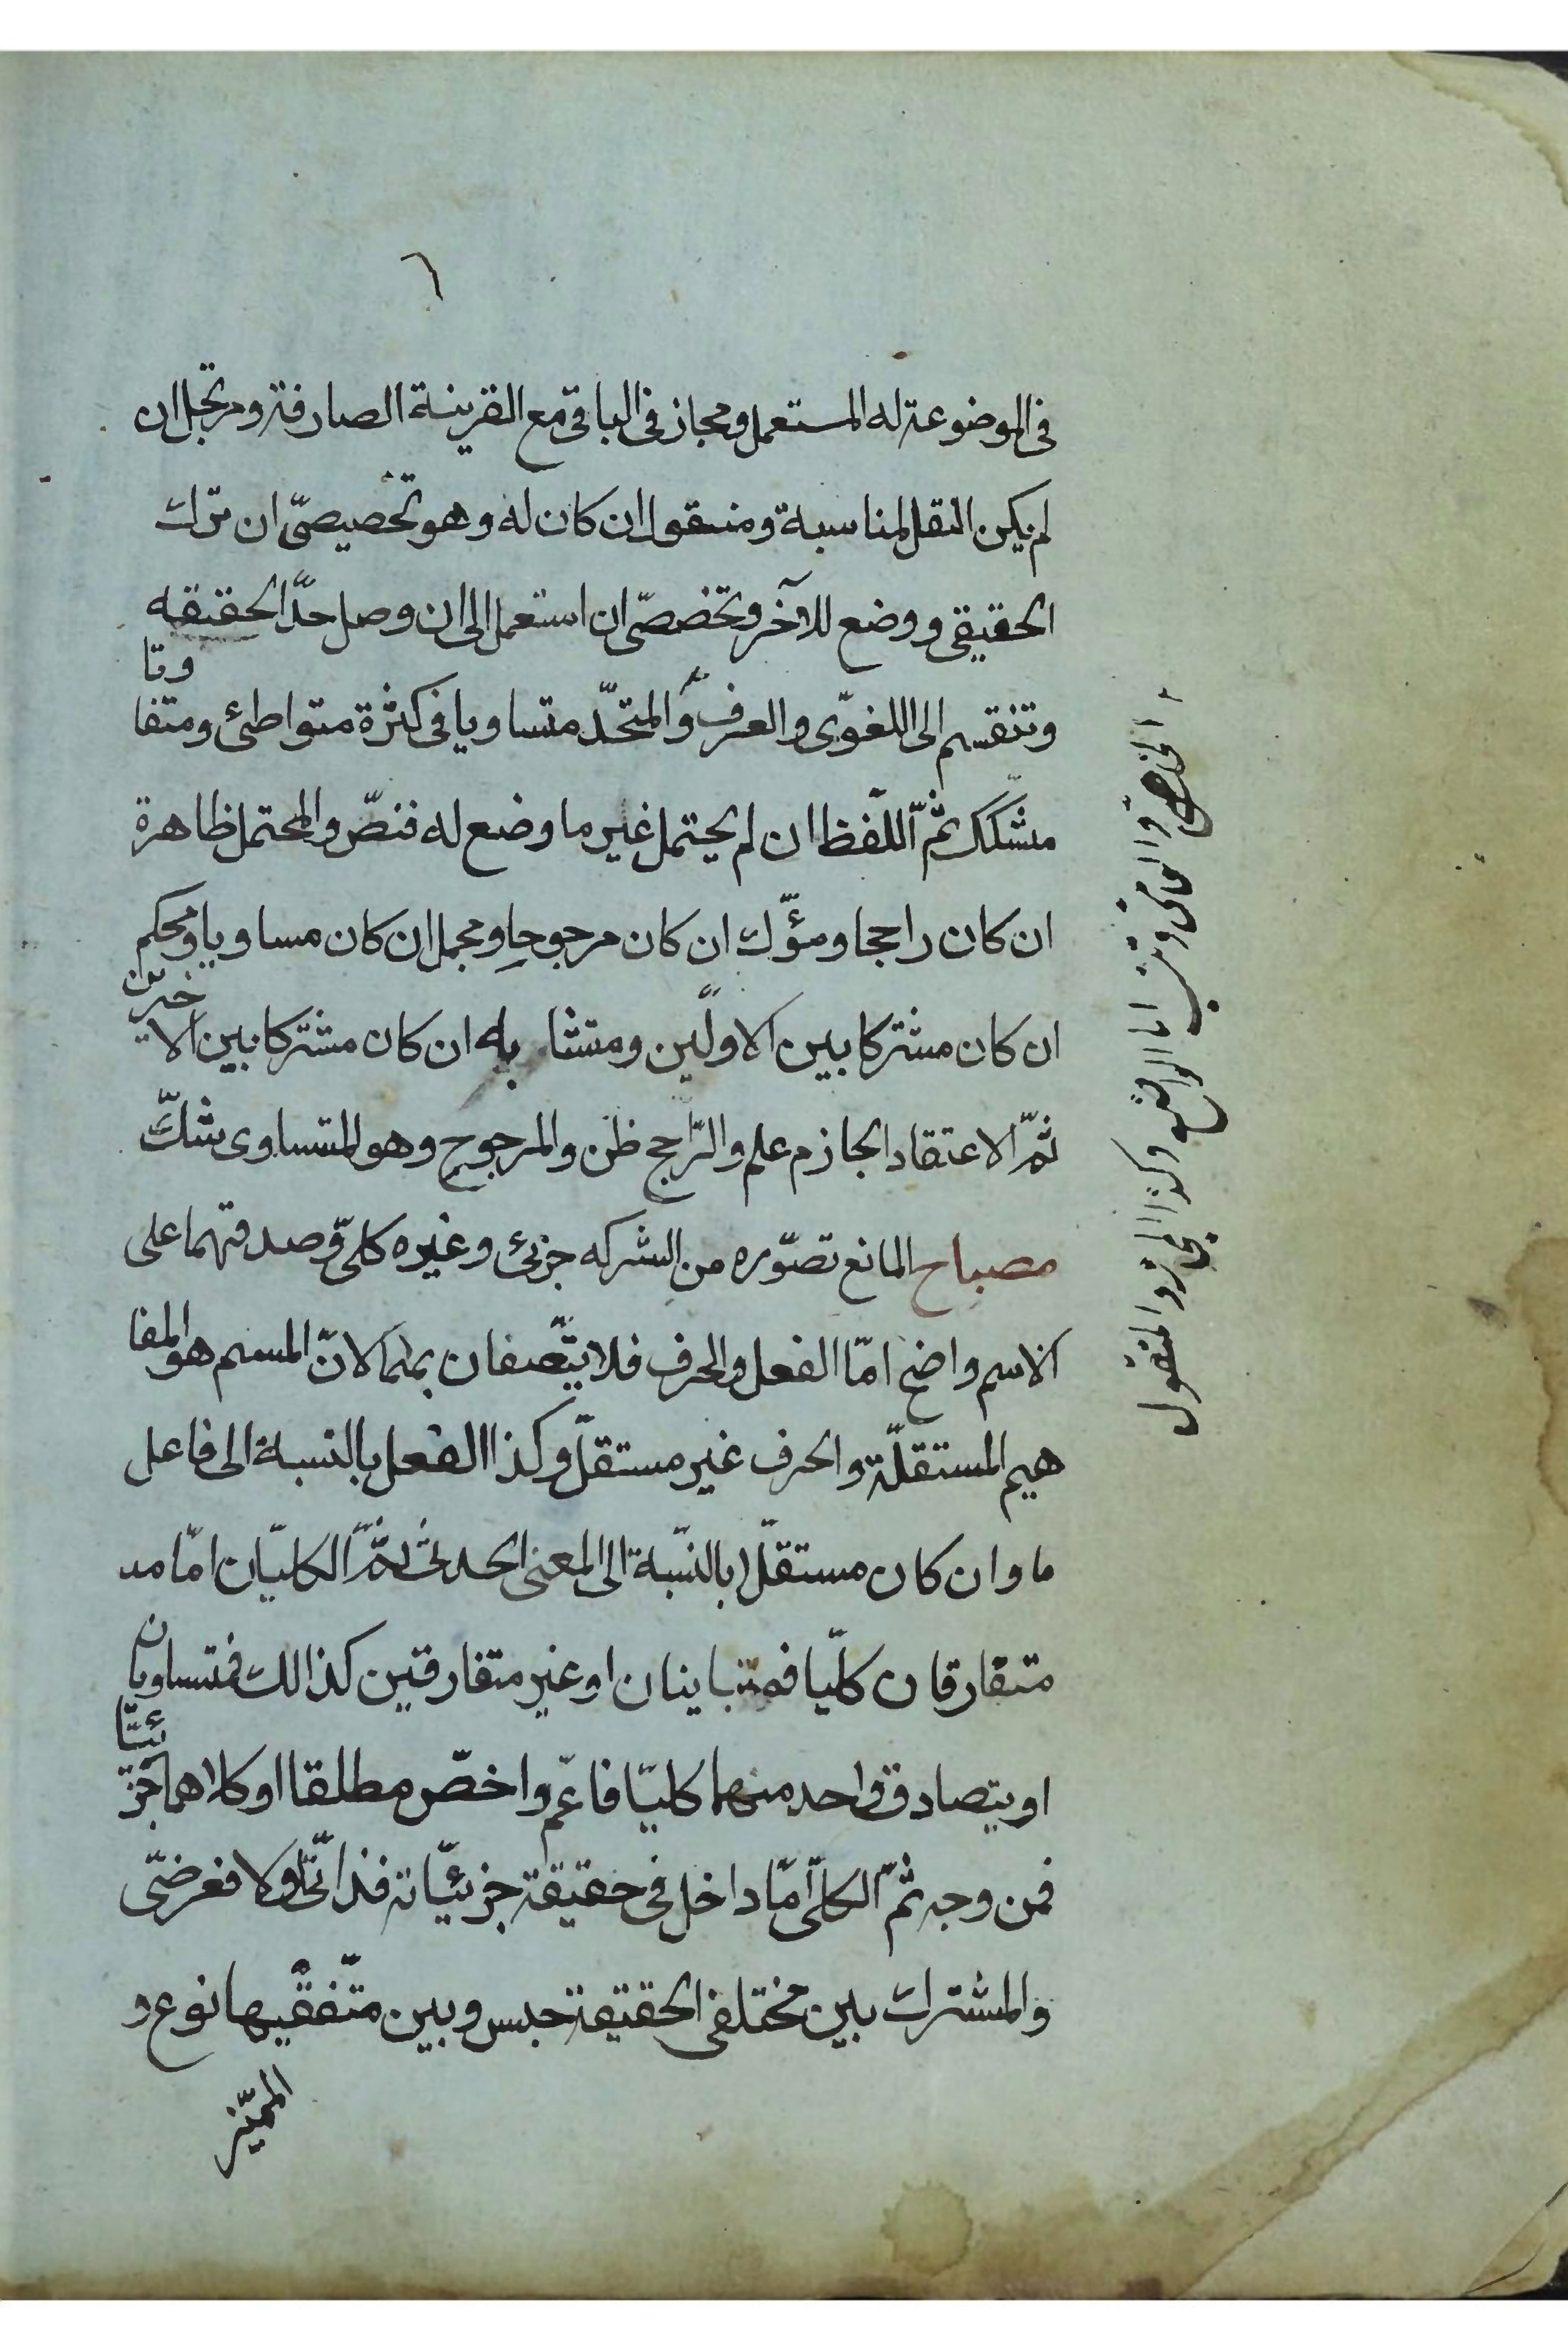 ٦
فى الموضوعة له المستعمل ومجاز فى الباقى مع القرينة الصارفة ومرتجل ان
لم يكن النقل لمناسبة ومنقول ان كان له وهو تخصيصىّ ان ترك
الحقيقى ووضع للآخر وتخصصّى ان استعمل الى ان وصل حدّ الحقيقه
وتنقسم الى اللغوّى والعرف والمتحّد متساويا فى كثرة متواطئ ومتفا
وتا
مشكّك ثمّ اللّفظ ان لم يحتمل غير ما وضع له فنصّ والمحتمل ظاهرة
ان كان راجحا ومؤّل ان كان مرجوحا ومجمل ان كان مساويا ومحكم
ان كان مشتركا بين الاولّين ومتشابه ان كان مشتركا بين الا
خيرين
ثمّ الاعتقاد الجازم علم والرّاجح ظن والمرجوح وهو المتساوى شكّ
مصباح المانع تصوّره من الشركه جزئ وغيره كلىّ وصدقهما على
الاسم واضح امّا الفعل والحرف فلا يتّصفان بهما لانّ المسم هو المفا
هيم المستقلّة والحرف غير مستقلّ وكذا الفعل بالنسبة الى فاعل
ما وان كان مستقلّا بالنّسبة الى المعنى الحدثى ثمّ الكليّان امّا مد
متفارقان كلّيا فمتباينان او غير متفارقين كذالك فمتساويا
ن
او يتصادق واحد منهما كليّا فاعّم واخصّ مطلقا او كلاهما جز
ئيّا
فمن وجه ثمّ الكلّى امّا داخل فى حقيقة جزئيّاته فذاتّى اولا فعرضىّ
والمشترك بين مختلفى الحقيقة جنس وبين متّفقيها نوع و
المميّز
وكذا المجاز والمنقول